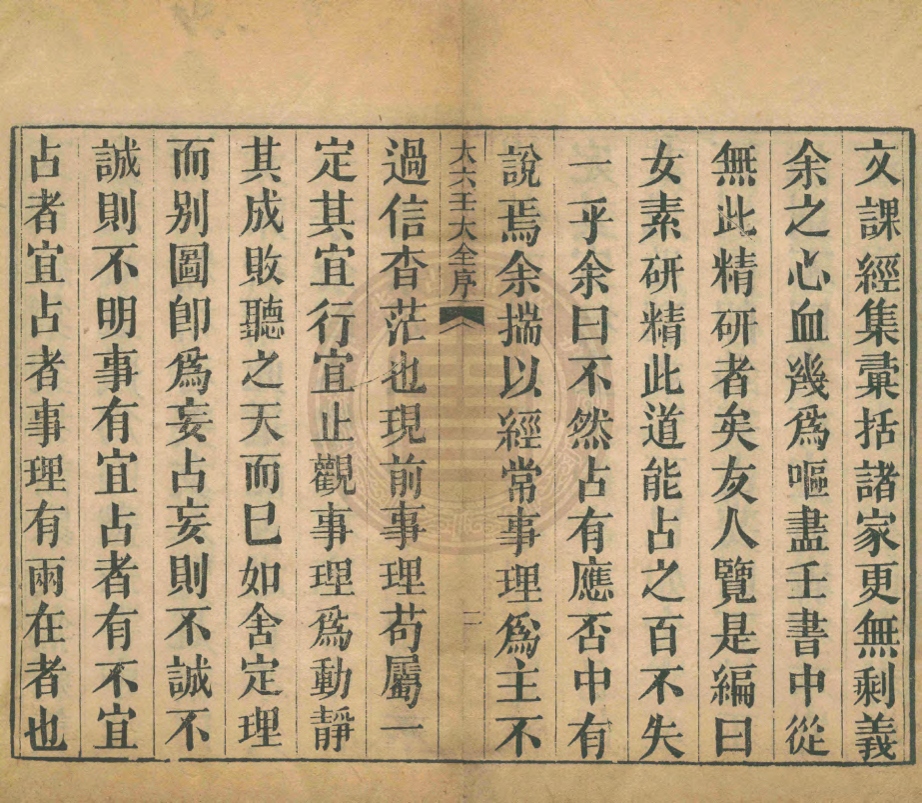 文課經集彚括諸家更無剩義
余之心血幾爲嘔盡壬書中從
無此精研者矣友人覽是編曰
女素研精此道能占之百不失
一乎余曰不然占有應否中有
說焉余揣以經常事理爲主不
大六壬大全序 二
過信杳茫也現前事理苟屬一
定其宜行宜止觀事理爲動靜
其成敗聽之天而巳如舍定理
而别圖卽爲妄占妄則不誠不
誠則不明事有宜占者有不宜
占者宜占者事理有兩在者也